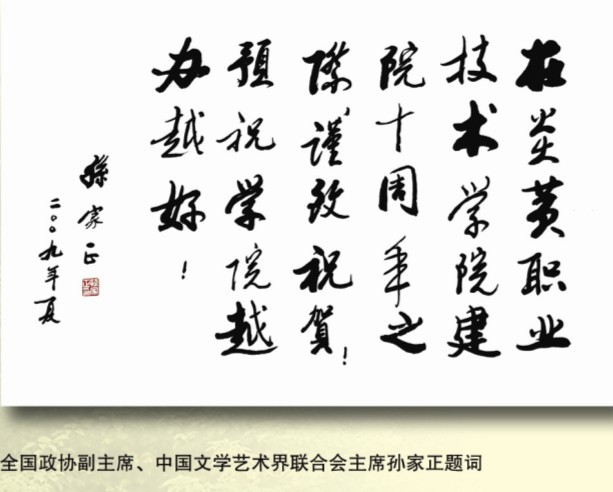 在炎黄职业
技术学院建
院十周年之
际，谨致祝贺！
预祝学院越
办越好！
孙家正
二〇〇九年夏
全国政协副主席、中国文学艺术界联合会主席孙家正题词